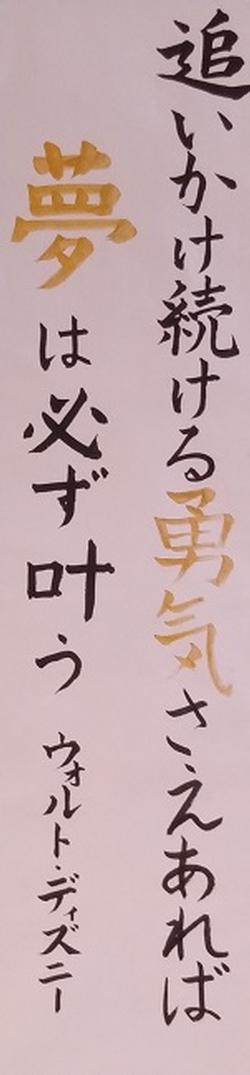 追いかけ続ける勇気さえあれば
夢は必ず叶う
ウォルト・ディズニー